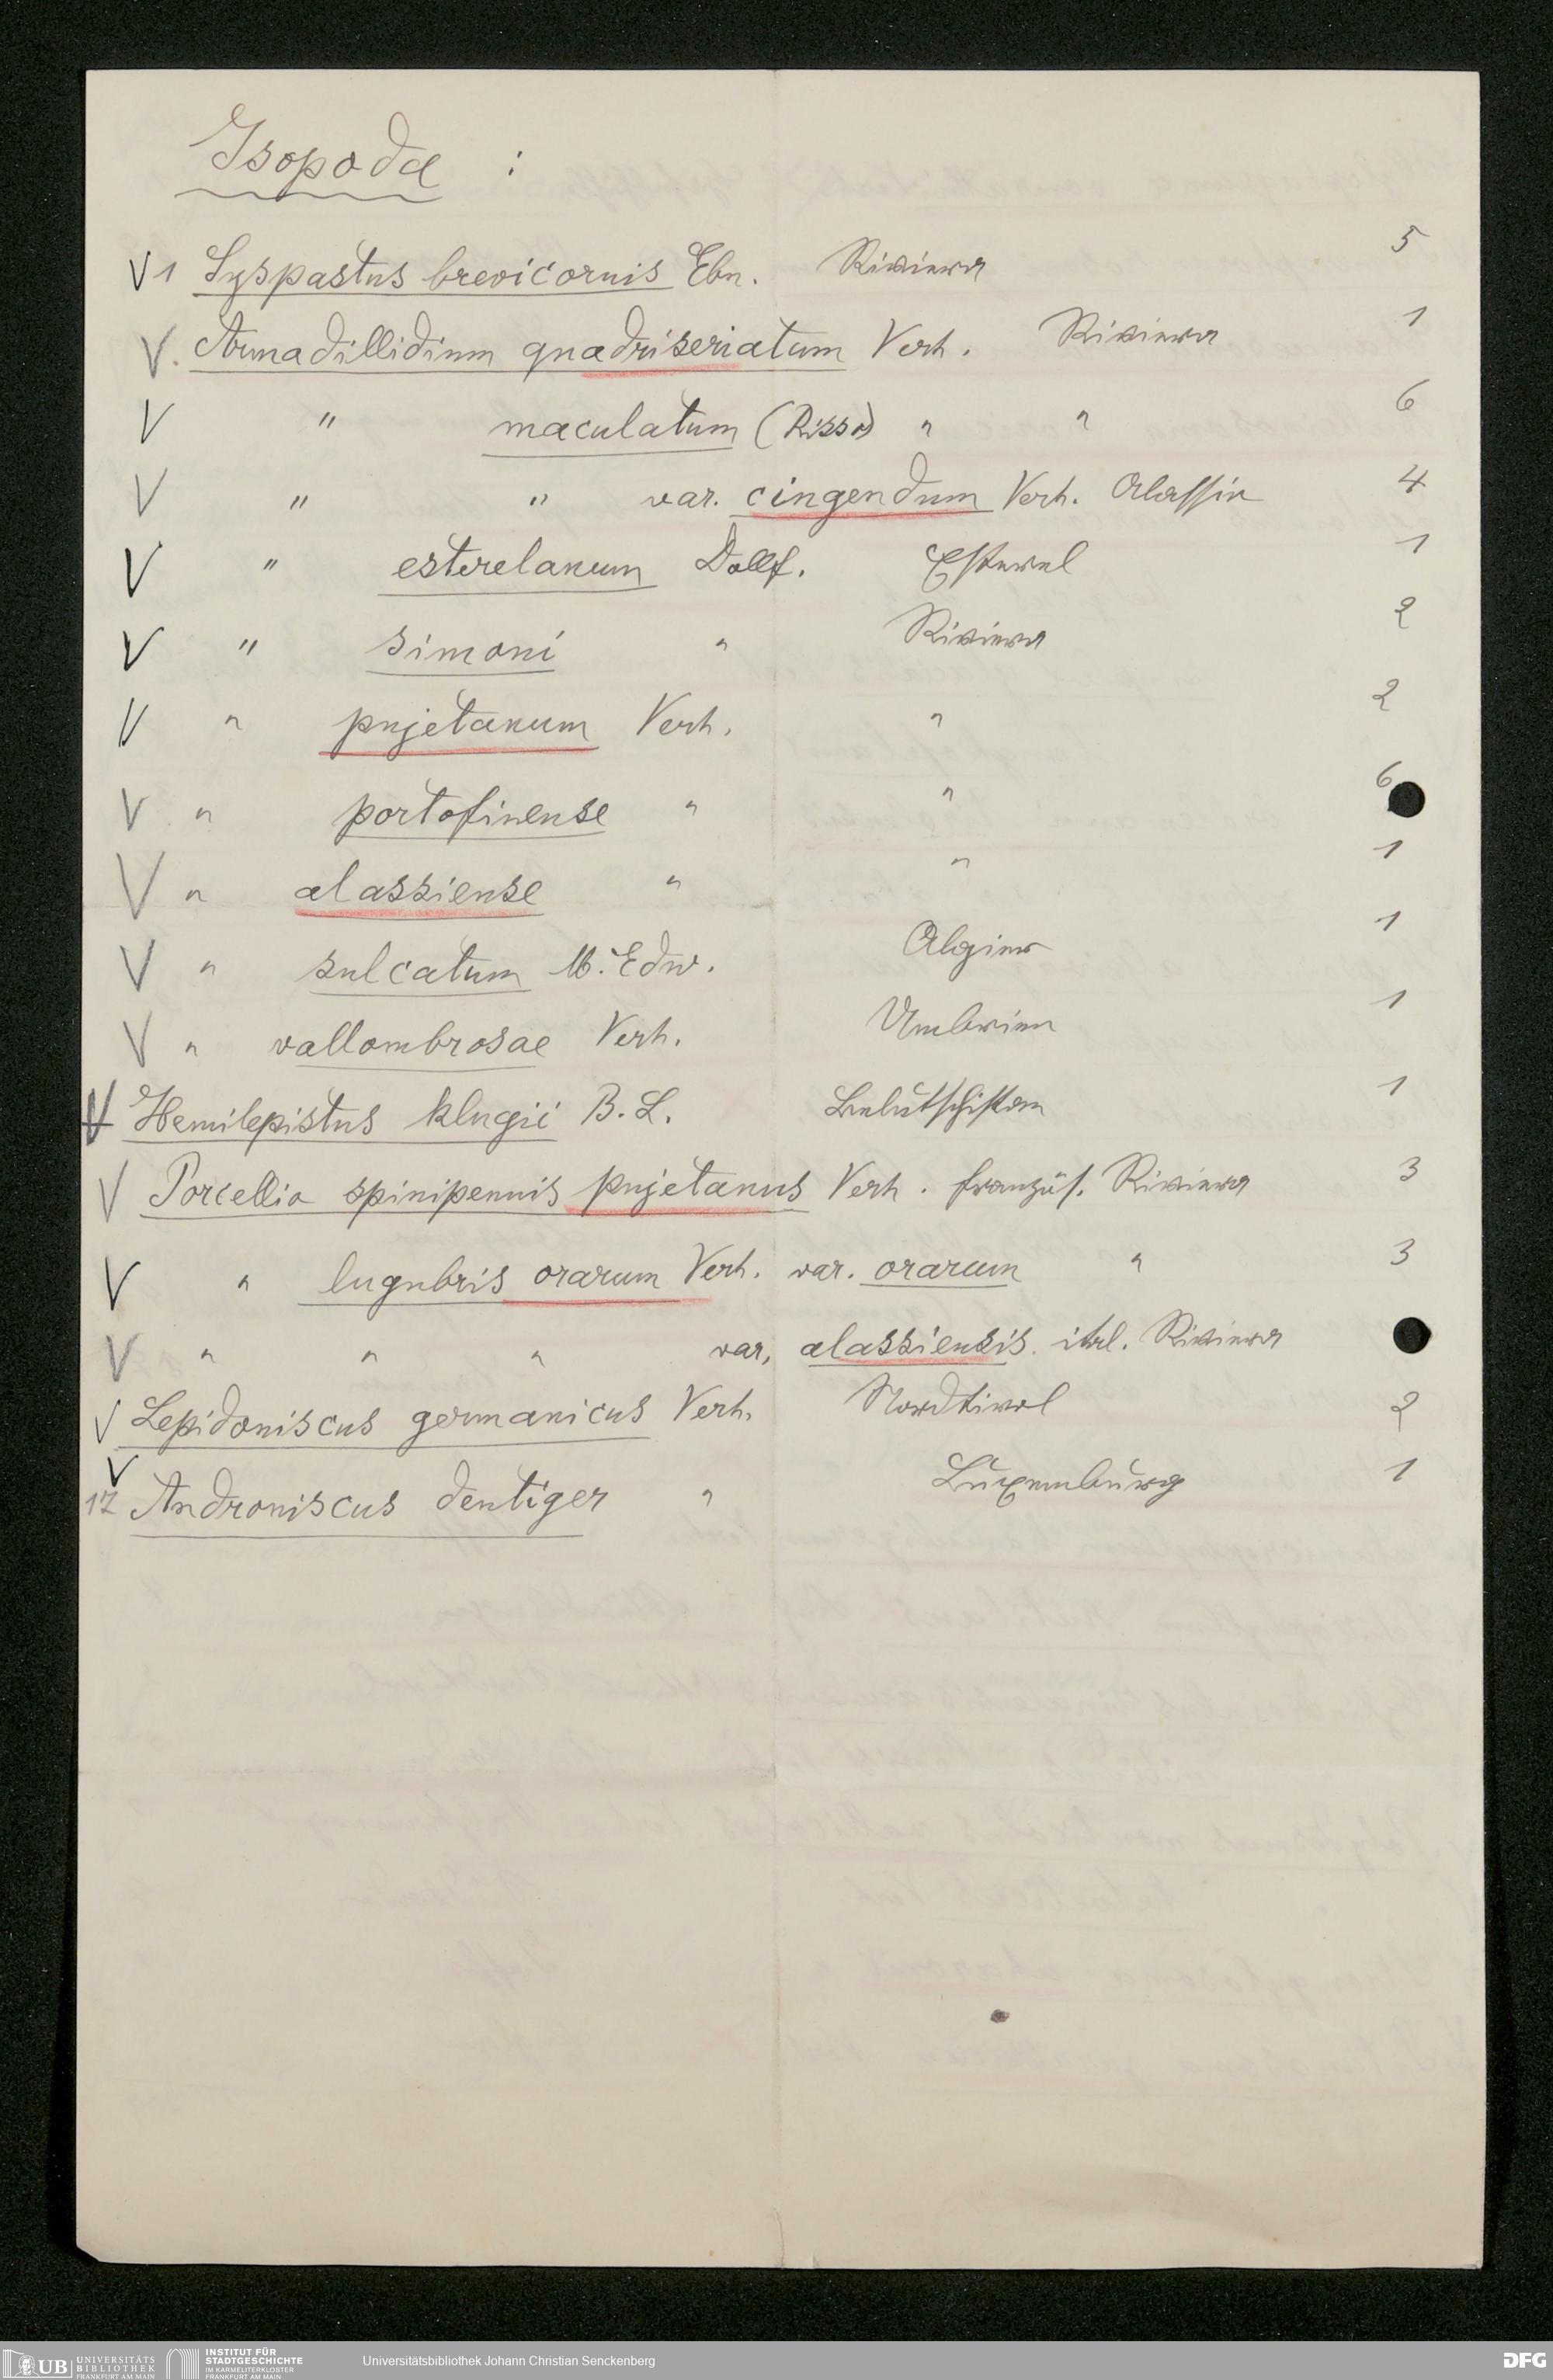 Isopoda :
V 1 Syspastus brevicornis Ebn. Riviera 5
V. Armadillidium quadriseriatum Verh. Riviera 1
V " maculatum (Risso) " " 6
V " " var. cingendum Verh. Alassio 4
V " esterelanum Dollf. Esterel 1
V " simoni " Riviera 2
V " pujetanum Verh. " 2
V " portofinense " " 6
V " alassiense " " 1
V " sulcatum M. Edw. Algier 1
V " vallombrosae Verh. Umbrien 1
V Hemilepistus klugii B. L. Belutschistan 1
V Porcellio spinipennis pujetanus Verh. französ. Riviera 3
V " lugubris orarum Verh. var. orarum " 3
V " " " var, alassiensis. ital. Riviera
V Lepidoniscus germanicus Verh. Nordtirol 2
V
17 Androniscus dentiger " Luxemburg 1
UB UNIVERSITÄTS BIBLIOTHEK FRANKFURT AM MAIN
INSTITUT FÜR STADTGESCHICHTE IM KARMELITERKLOSTER FRANKFURT AM MAIN
Universitätsbibliothek Johann Christian Senckenberg
DFG